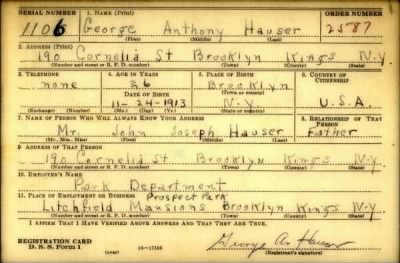 SERIAL NUMBER 1. NAME (Print) ORDER NUMBER
1106 George Anthony Hauser 2587
(First) (Middle) (Last)
2. ADDRESS (Print)
190 Cornelia St Brooklyn Kings N.Y
(Number and street or R. F. D. number) (Town) (County) (State)
3. TELEPHONE 4. AGE IN YEARS 5. PLACE OF BIRTH 6. COUNTRY OF CITIZENSHIP
none 26 Brooklyn
DATE OF BIRTH (Town or county)
11-24-1913 N.Y U.S.A.
(Exchange) (Number) (Mo.) (Day) (Yr.) (State or country)
7. NAME OF PERSON WHO WILL ALWAYS KNOW YOUR ADDRESS 8. RELATIONSHIP OF THAT PERSON
Mr. John Joseph Hauser Father
(Mr., Mrs., Miss) (First) (Middle) (Last)
9. ADDRESS OF THAT PERSON
190 Cornelia St Brooklyn Kings N.Y
(Number and street or R. F. D. number) (Town) (County) (State)
10. EMPLOYER'S NAME
Park Department
11. PLACE OF EMPLOYMENT OR BUSINESS Prospect Park
Litchfield Mansions Brooklyn Kings N.Y
(Number and street or R. F. D. number) (Town) (County) (State)
I AFFIRM THAT I HAVE VERIFIED ABOVE ANSWERS AND THAT THEY ARE TRUE.
REGISTRATION CARD
D. S. S. Form 1 16-17105 George A. Hauser
(Registrant's signature)